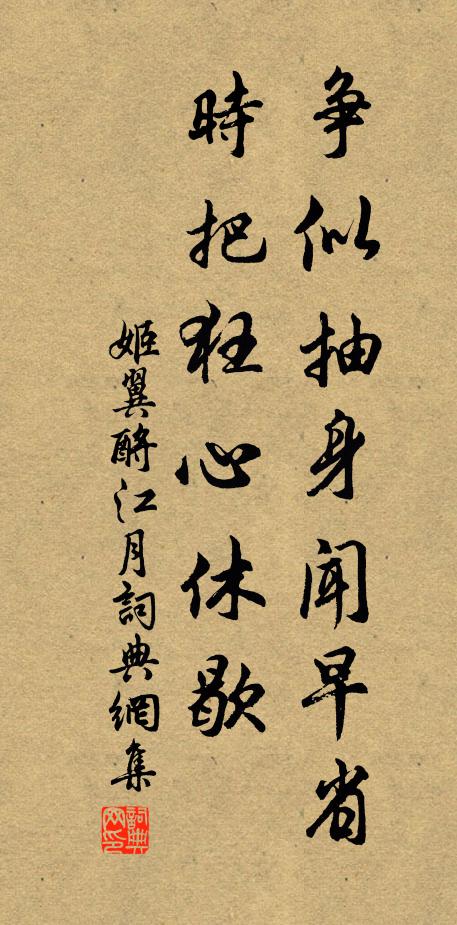 争似抽身闻早省
時把狂心休歇
姬翼酹江月詞典網集
詞典网印